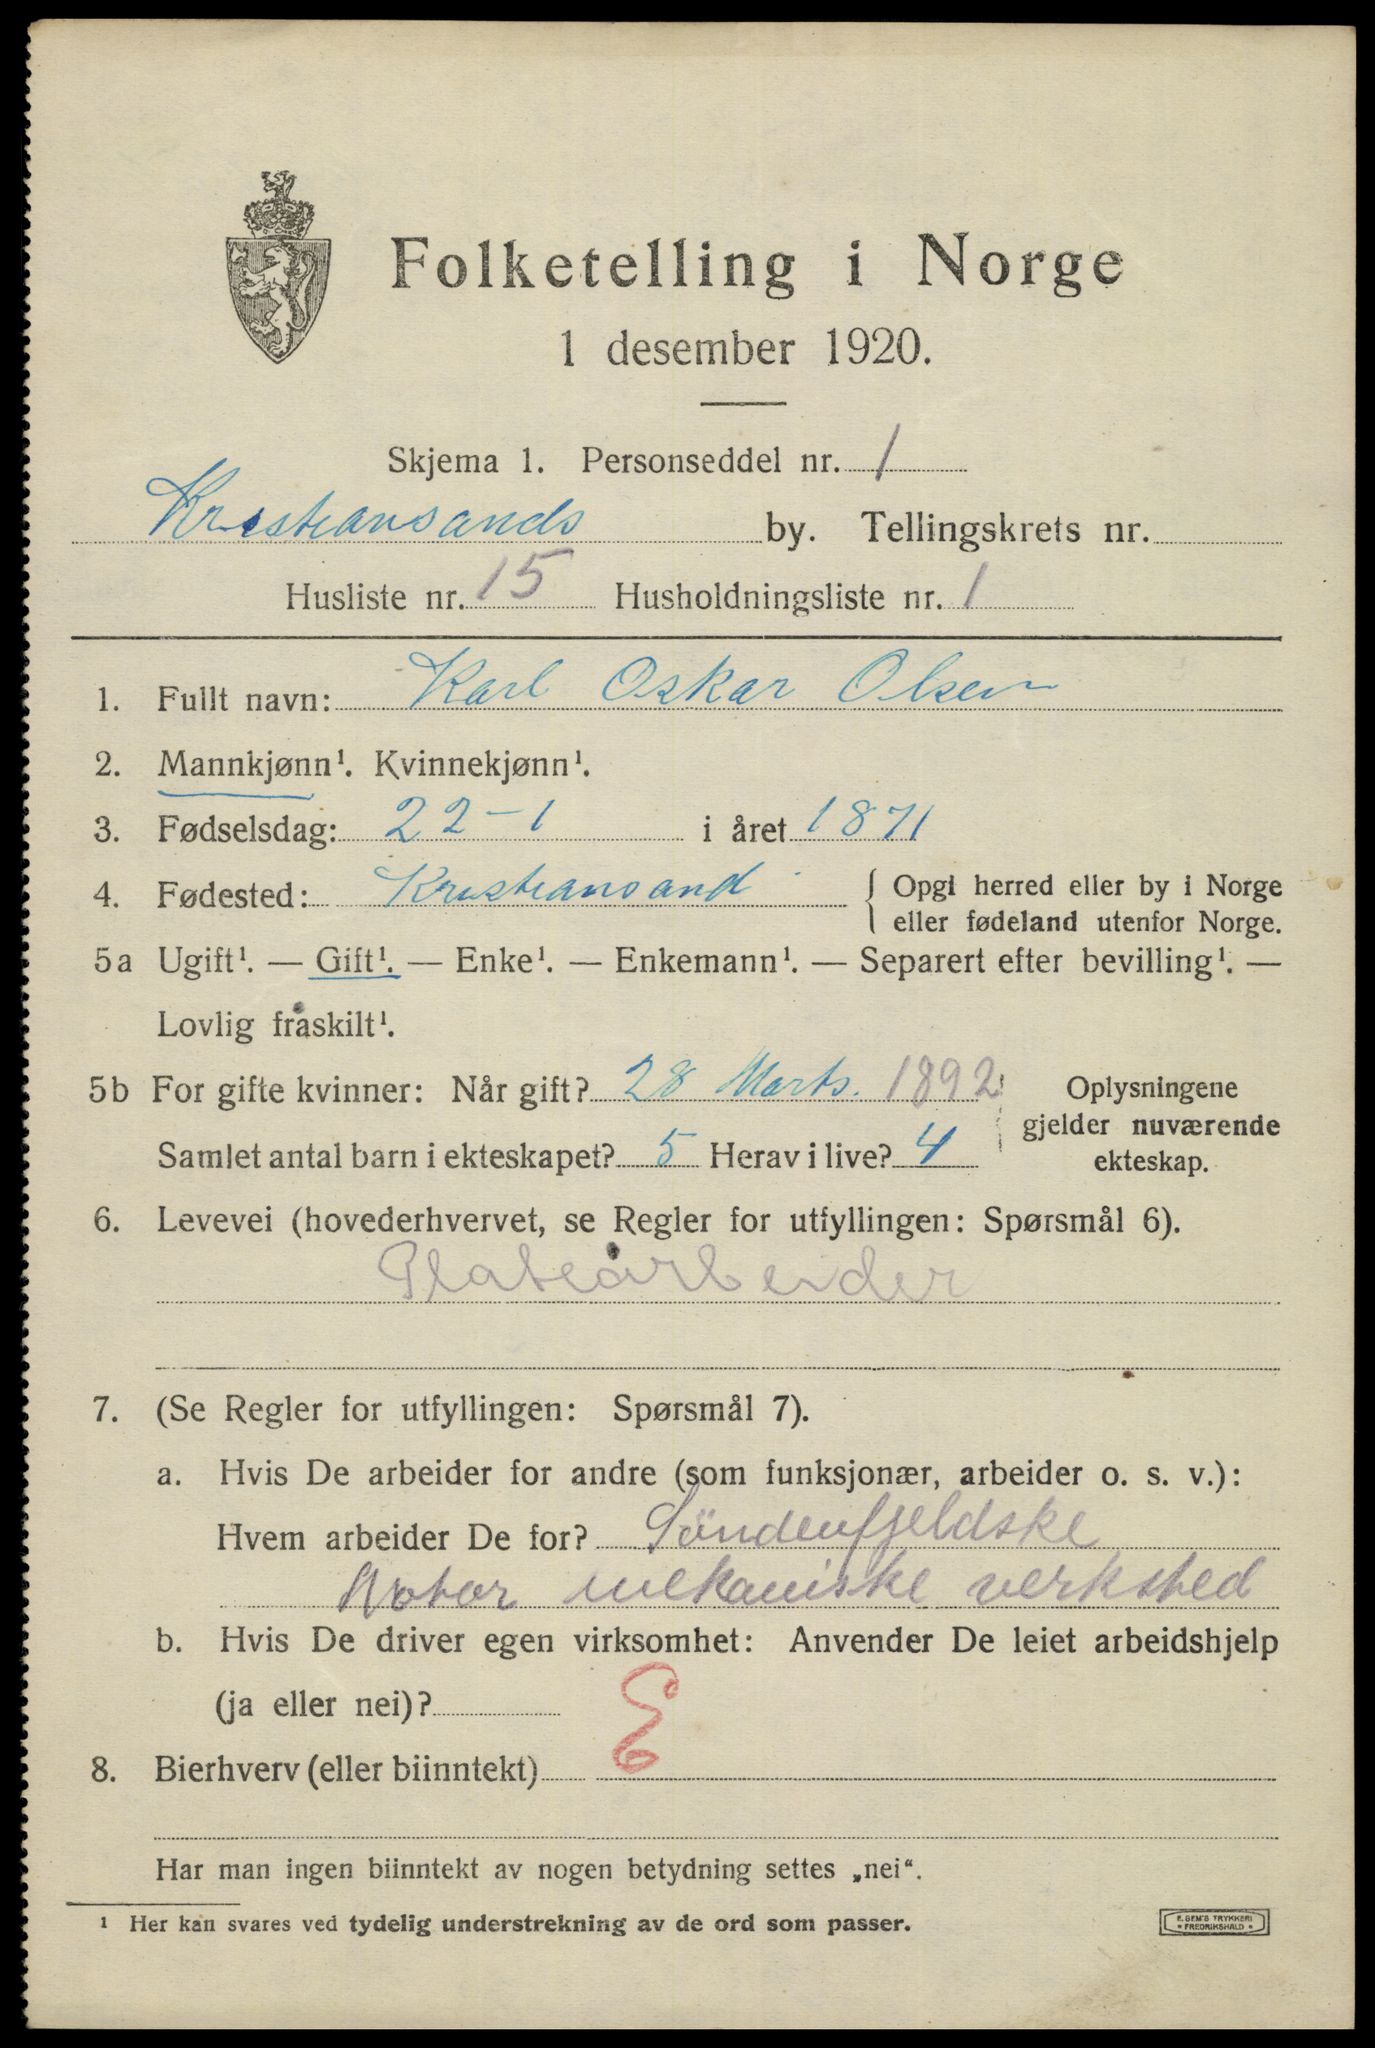 Folketelling i Norge
1 desember 1920.
Skjema 1. Personseddel nr. 1
Kristiansands by. Tellingskrets nr.
Husliste nr. 15 Husholdningsliste nr. 1
1. Fullt navn: Karl Oskar Olsen
2. Mannkjønn¹. Kvinnekjønn¹.
3. Fødselsdag: 22-1 i året 1871
4. Fødested: Kristiansand { Opgi herred eller by i Norge
eller fødeland utenfor Norge.
5a Ugift¹. — Gift¹. — Enke¹. — Enkemann¹. — Separert efter bevilling¹. —
Lovlig fraskilt¹.
5b For gifte kvinner: Når gift? 28 Marts. 1892 Oplysningene
gjelder nuværende
Samlet antal barn i ekteskapet? 5 Herav i live? 4 ekteskap.
6. Levevei (hovederhvervet, se Regler for utfyllingen: Spørsmål 6).
Platearbeider
7. (Se Regler for utfyllingen: Spørsmål 7).
a. Hvis De arbeider for andre (som funksjonær, arbeider o. s. v.):
Hvem arbeider De for? Söndenfjeldske
Motor mekaniske verksted
b. Hvis De driver egen virksomhet: Anvender De leiet arbeidshjelp
(ja eller nei)?
E
8. Bierhverv (eller biinntekt)
Har man ingen biinntekt av nogen betydning settes „nei“.
¹ Her kan svares ved tydelig understrekning av de ord som passer.
E. SEM'S TRYKKERI
• FREDRIKSHALD •